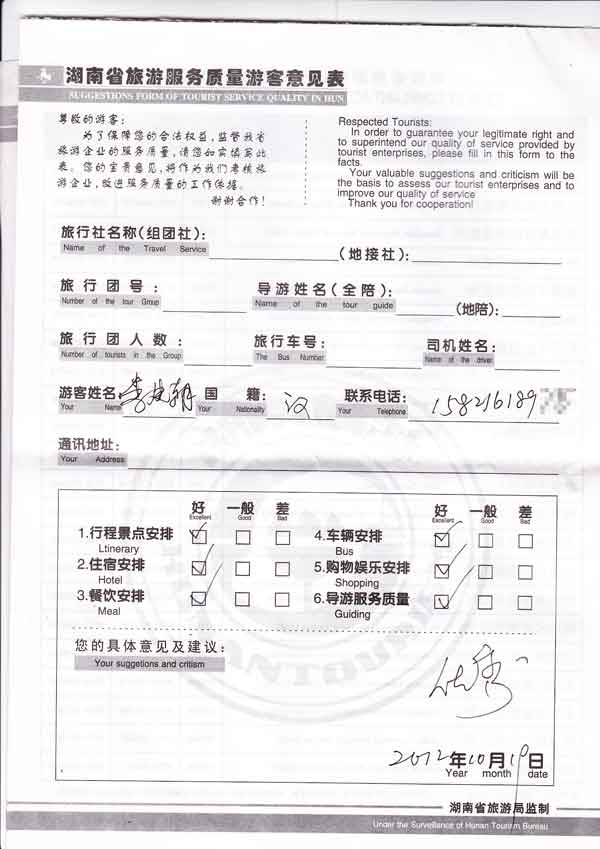 湖南省旅游服务质量游客意见表
SUGGESTIONS FORM OF TOURIST SERVICE QUALITY IN HUN
尊敬的游客:
为了保障您的合法权益,监督我省
旅游企业的服务质量,请您如实填写此
表。您的宝贵意见,将作为我们考核旅
游企业,改进服务质量的工作依据。
谢谢合作!
Respected Tourists:
In order to guarantee your legitimate right and
to superintend our quality of service provided by
tourist enterprises, please fill in this form to the
facts.
Your valuable suggestions and criticism will be
the basis to assess our tourist enterprises and to
improve our quality of service
Thank you for cooperation!
旅行社名称(组团社): (地接社):
Name of the Travel Service
旅行团号: 导游姓名(全陪): (地陪):
Number of the tour Group Name of the tour guide
旅行团人数: 旅行车号: 司机姓名:
Number of tourists in the Group The Bus Number Name of the driver
游客姓名 国籍: 汉 联系电话: 158216189
Your Name Your Nationality Your Telephone
通讯地址:
Your Address:
好 一般 差 好 一般 差
Excellent Good Bad Excellent Good Bad
1.行程景点安排 4.车辆安排
Ltinerary Bus
2.住宿安排 5.购物娱乐安排
Hotel Shopping
3.餐饮安排 6.导游服务质量
Meal Guiding
您的具体意见及建议:
Your suggetions and critism
优秀
2012年10月19日
Year month date
湖南省旅游局监制
Under the Surveillance of Hunan Tourism Bureau